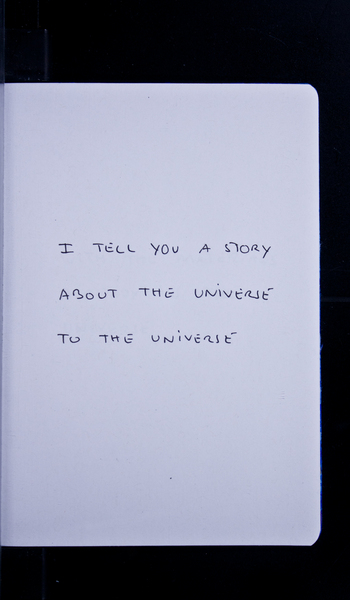 I TELL YOU A STORY
ABOUT THE UNIVERSE
TO THE UNIVERSE